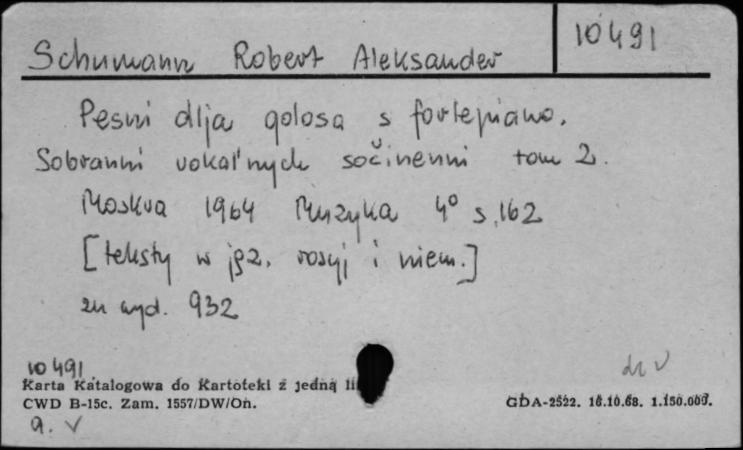 Schumann Robert Aleksander 10491
Pesni dlja golosa s fortepiano.
Sobranni vokal'nych sočinenni tom 2.
Moskva 1964 Muzyka 4° s. 162
[teksty w jęz. rosyj i niem.]
zn wyd. 932
10 491
Karta Katalogowa do Kartoteki z jedną
CWD B-15c. Zam. 1557/DW/On.
GDA-2522. 16.10.68. 1.150.000.
a. V